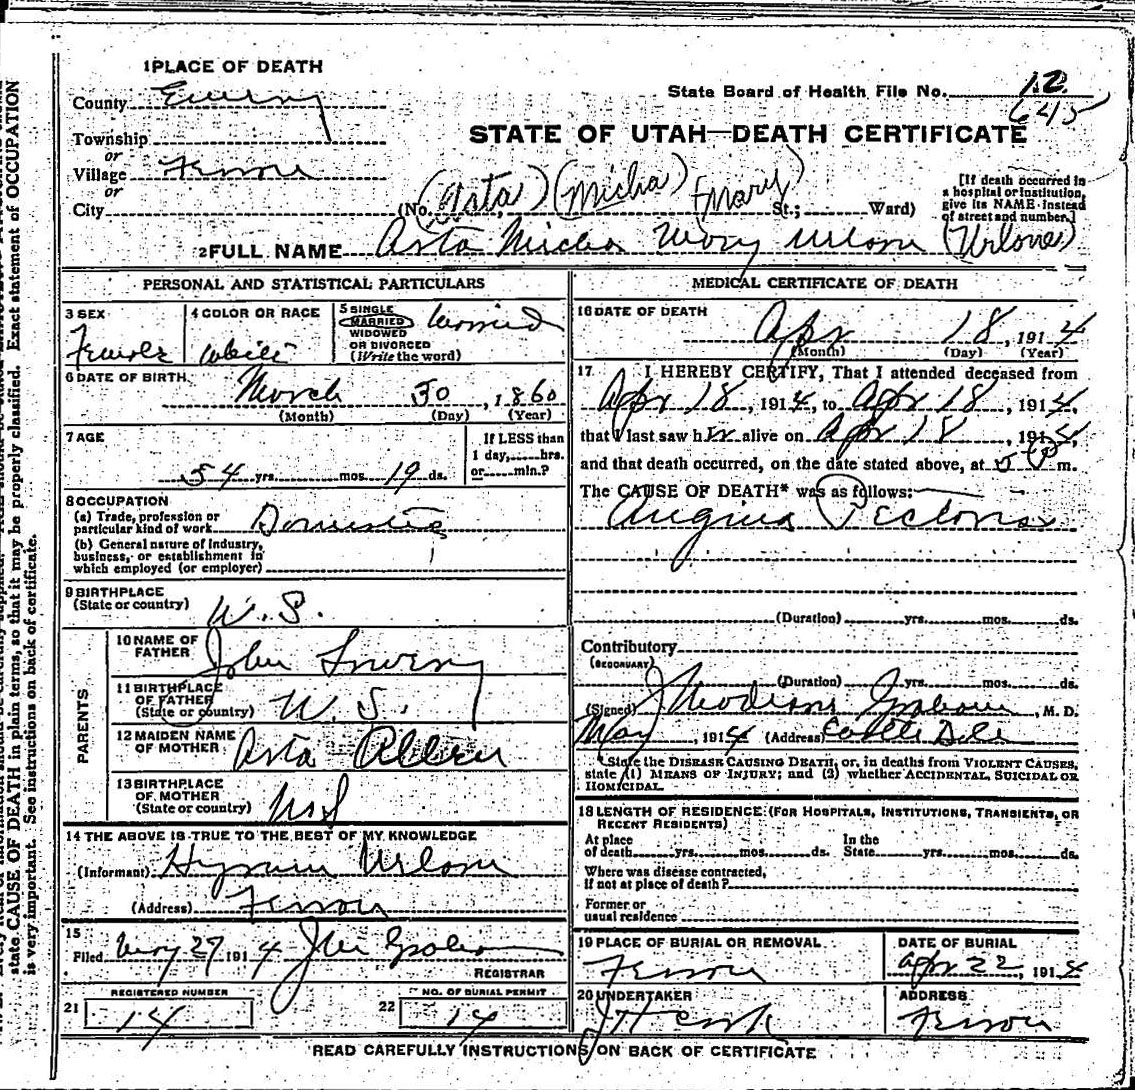 1 PLACE OF DEATH
County Emery
State Board of Health File No. 12
645
Township
or
STATE OF UTAH—DEATH CERTIFICATE
Village Ferron
or
City (No. (Asta) (Micha) (Mary) St.; Ward)
[If death occurred in
a hospital or institution,
give its NAME instead
of street and number.]
2 FULL NAME Asta Micha Mary Wrlone (Wrlone)
PERSONAL AND STATISTICAL PARTICULARS
3 SEX
Female
4 COLOR OR RACE
White
5 SINGLE
MARRIED
WIDOWED
OR DIVORCED
(Write the word)
Married
6 DATE OF BIRTH
March 30, 1860
(Month) (Day) (Year)
7 AGE
54 yrs. mos. 19 ds.
If LESS than
1 day, hrs.
or min.?
8 OCCUPATION
(a) Trade, profession or
particular kind of work Domestic
(b) General nature of industry,
business, or establishment in
which employed (or employer)
9 BIRTHPLACE
(State or country) U.S.
PARENTS
10 NAME OF
FATHER John Lowry
11 BIRTHPLACE
OF FATHER
(State or country) U.S.
12 MAIDEN NAME
OF MOTHER Asta Allen
13 BIRTHPLACE
OF MOTHER
(State or country) U.S.
14 THE ABOVE IS TRUE TO THE BEST OF MY KNOWLEDGE
(Informant) Hyrum
(Address) Ferron
15
Filed May 27 1914 J W
REGISTRAR
21 REGISTERED NUMBER
14
22 NO. OF BURIAL PERMIT
14
MEDICAL CERTIFICATE OF DEATH
16 DATE OF DEATH
Apr 18, 1914
(Month) (Day) (Year)
17 I HEREBY CERTIFY, That I attended deceased from
Apr 18, 1914, to Apr 18, 1914,
that I last saw her alive on Apr 18, 1914,
and that death occurred, on the date stated above, at 5 P m.
The CAUSE OF DEATH* was as follows:
Angina Pectoris
(Duration) yrs. mos. ds.
Contributory
(SECONDARY)
(Duration) yrs. mos. ds.
(Signed) M. D.
May, 1914 (Address) Castle Dale
*State the DISEASE CAUSING DEATH, or, in deaths from VIOLENT CAUSES,
state (1) MEANS OF INJURY; and (2) whether ACCIDENTAL, SUICIDAL OR
HOMICIDAL.
18 LENGTH OF RESIDENCE (FOR HOSPITALS, INSTITUTIONS, TRANSIENTS, OR
RECENT RESIDENTS)
At place
of death yrs. mos. ds.
In the
State yrs. mos. ds.
Where was disease contracted,
if not at place of death?
Former or
usual residence
19 PLACE OF BURIAL OR REMOVAL
Ferron
DATE OF BURIAL
Apr 22, 1914
20 UNDERTAKER
ADDRESS
Ferron
READ CAREFULLY INSTRUCTIONS ON BACK OF CERTIFICATE
state CAUSE OF DEATH in plain terms, so that it may be properly classified. Exact statement of OCCUPATION
is very important. See instructions on back of certificate.